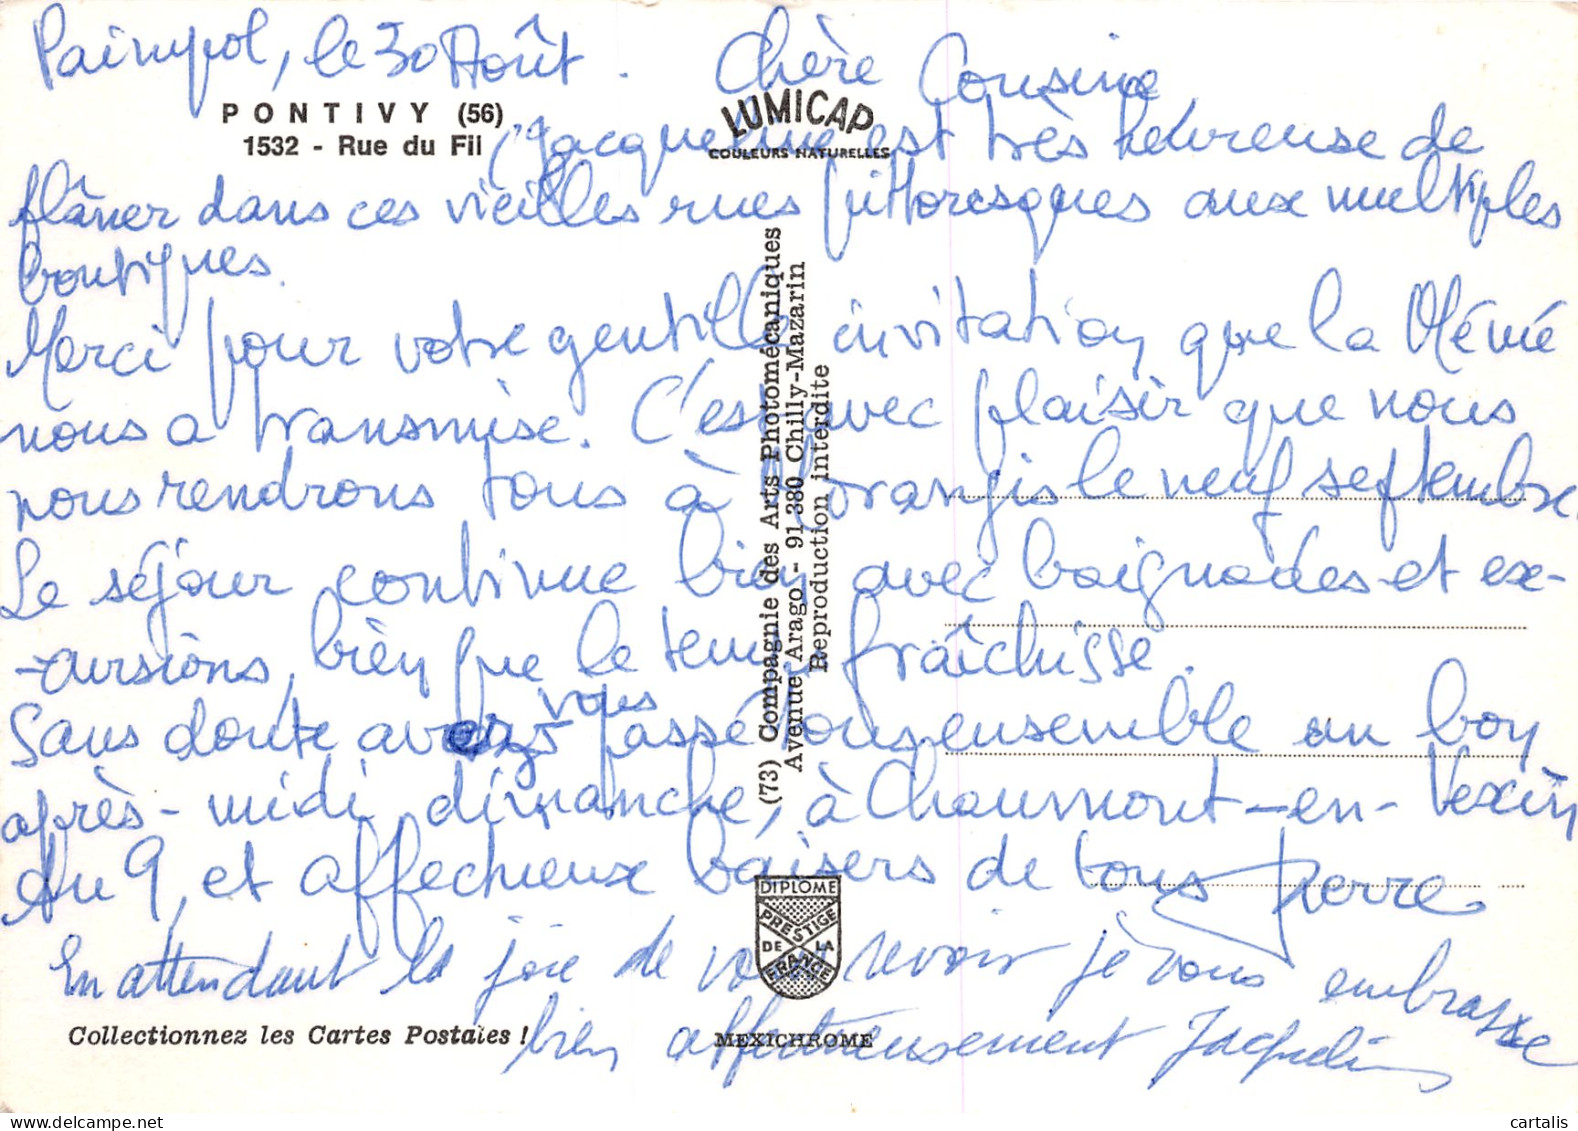 Paimpol, le 30 Août. Chère Cousine
PONTIVY (56)
1532 - Rue du Fil
LUMICAP
COULEURS NATURELLES
Jacqueline est très heureuse de
flâner dans ces vieilles rues pittoresques aux multiples
boutiques.
Merci pour votre gentille invitation que la Mémé
nous a transmise. C'est avec plaisir que nous
nous rendrons tous à Morangis le neuf septembre.
Le séjour continue bien avec baignades et ex-
-cursions, bien que le temps fraîchisse.
Sans doute avez vous passé tous ensemble un bon
après-midi dimanche, à Chaumont-en-Vexin
Au 9, et affectueux baisers de tous Pierre
En attendant la joie de vous revoir je vous embrasse
bien affectueusement Jacqueline
(73) Compagnie des Arts Photomécaniques
Avenue Arago - 91 380 Chilly-Mazarin
Reproduction interdite
DIPLOME
PRESTIGE
DE LA
FRANCE
Collectionnez les Cartes Postales !
MEXICHROME
cartalis